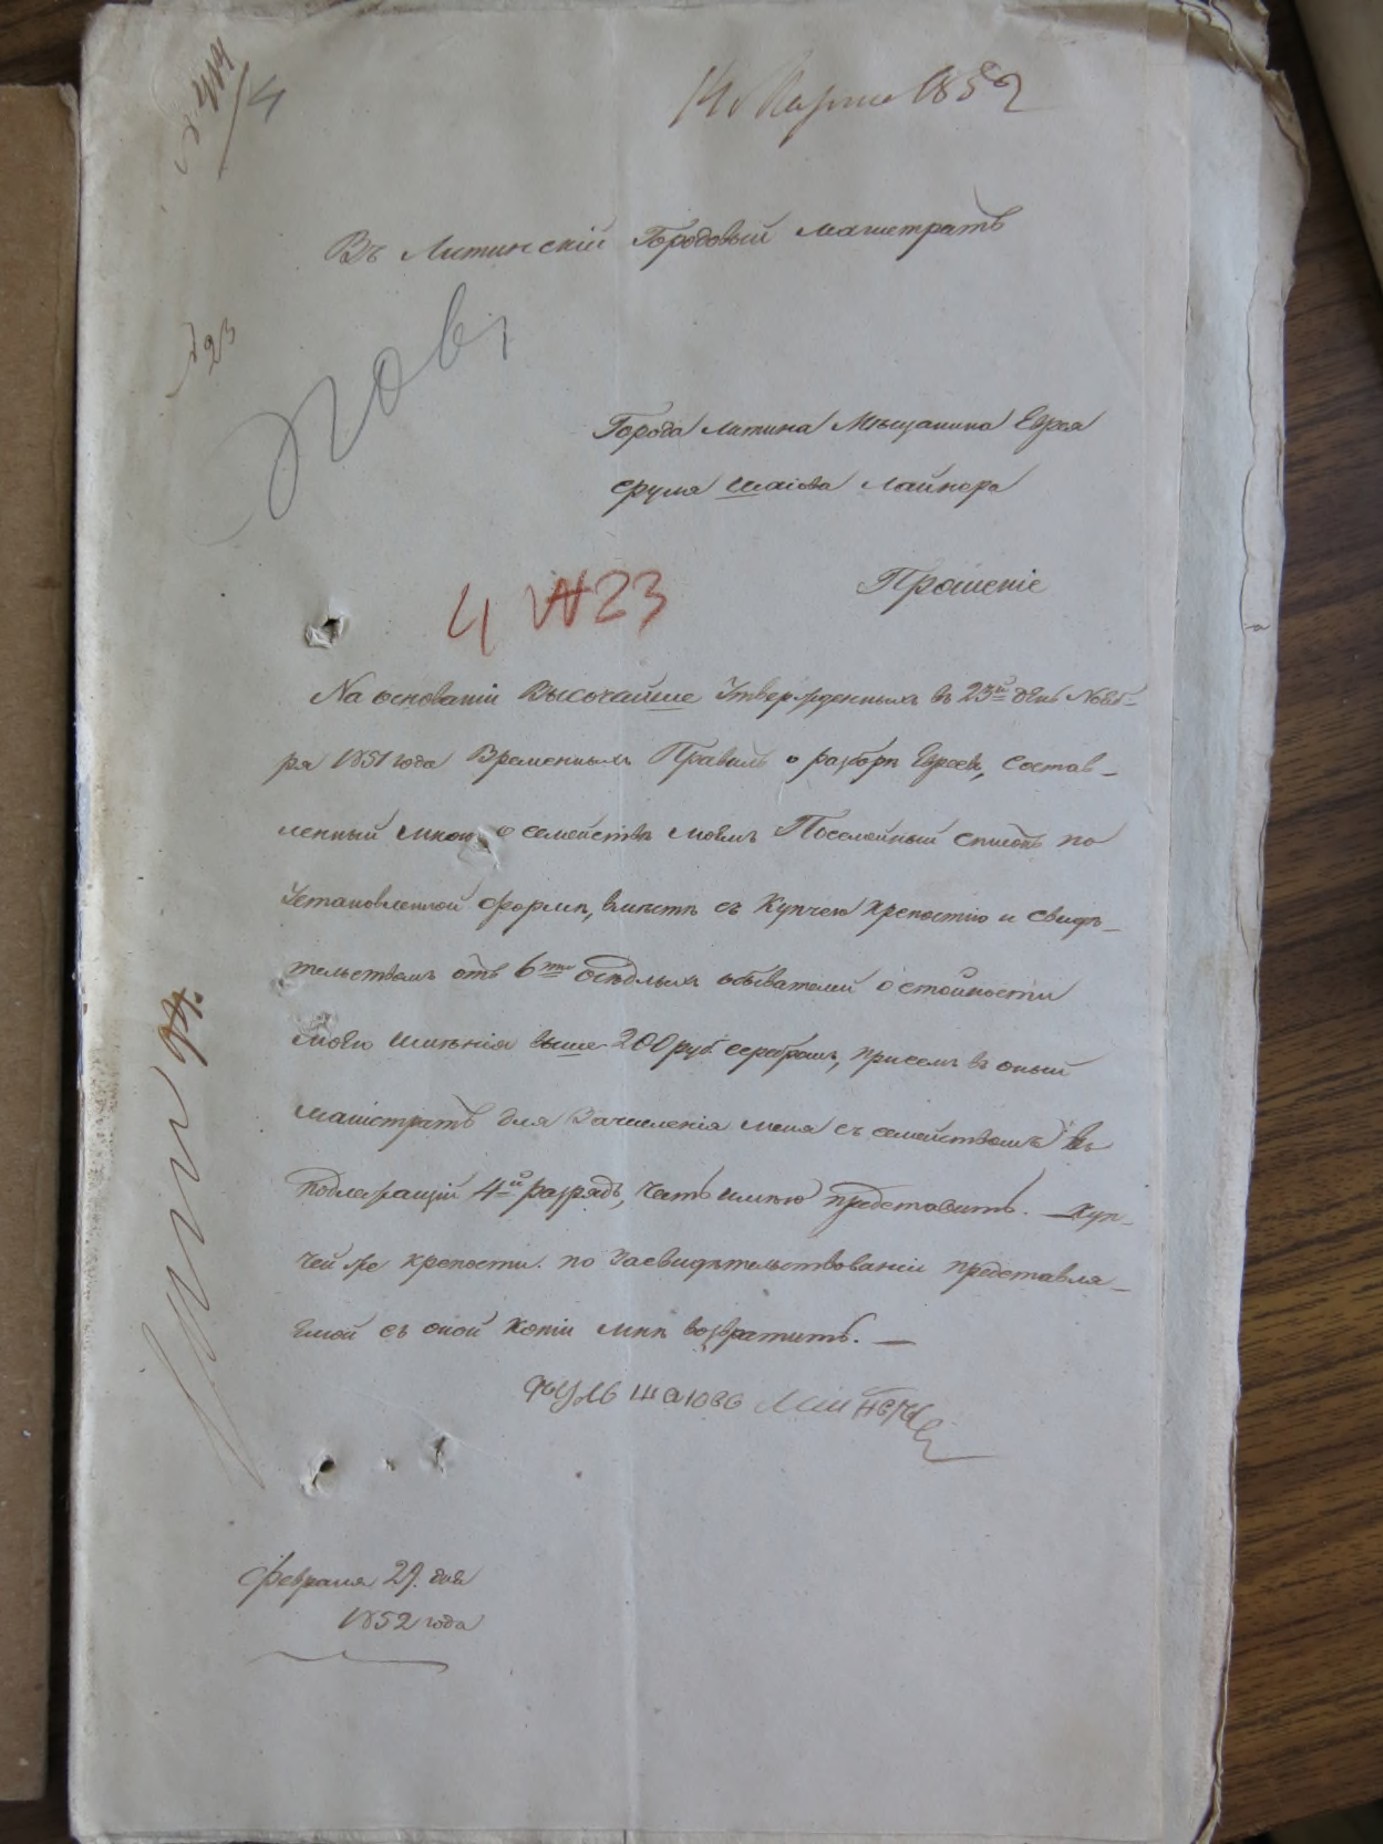 14 Марта 1852
№ 414/4
Въ Литинскій Городовый Магистратъ
№23
Города Литина Мѣщанина Еврея
Сруля Шаіова Лайнера
Прошеніе
4 №23
На основаніи Высочайше Утвержденныхъ въ 23й день Нояб-
ря 1851 года Временныхъ Правилъ о разборѣ Евреевъ, состав-
ленный мною о семействѣ моемъ Посемейный списокъ по
Установленной формѣ, вмѣстѣ съ Купчею крепостію и свидѣ-
тельствомъ отъ 6ти осѣдлыхъ обывателей о стоимости
моего имѣнія выше 200 руб серебромъ, при семъ въ оный
Магистратъ для Зачисленія меня съ семействомъ въ
подлежащій 4й разрядъ, честь имѣю представить. — Куп-
чей же крепости. по засвидѣтельствованіи представля-
емой съ оной копіи мнѣ возвратить. —
сруль шаіова
Февраля 29. дня
1852 года